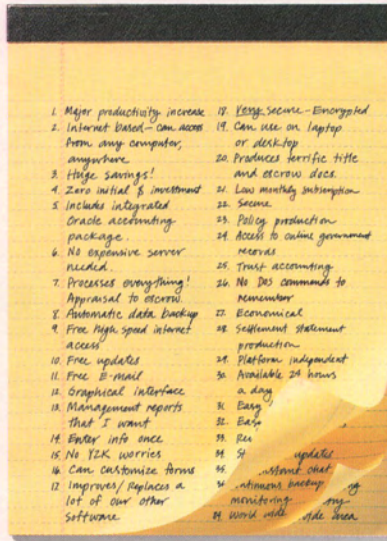 1. Major productivity increase
2. Internet based – can access
from any computer,
anywhere
3. Huge savings!
4. Zero initial $ investment
5. Includes integrated
Oracle accounting
package.
6. No expensive server
needed.
7. Processes everything!
Appraisal to escrow.
8. Automatic data backup
9. Free high speed internet
access
10. Free updates
11. Free E-mail
12. Graphical interface
13. Management reports
that I want
14. Enter info once
15. No Y2K worries
16. Can customize forms
17. Improves/Replaces a
lot of our other
software
18. Very secure – Encrypted
19. Can use on laptop
or desktop
20. Produces terrific title
and escrow docs.
21. Low monthly subscription
22. Secure
23. Policy production
24. Access to online government
records
25. Trust accounting
26. No DOS commands to
remember
27. Economical
28. Settlement statement
production
29. Platform independent
30. Available 24 hours
a day
31. Easy
32.
33.
34. updates
35. chat
36. backup
monitoring
World wide area